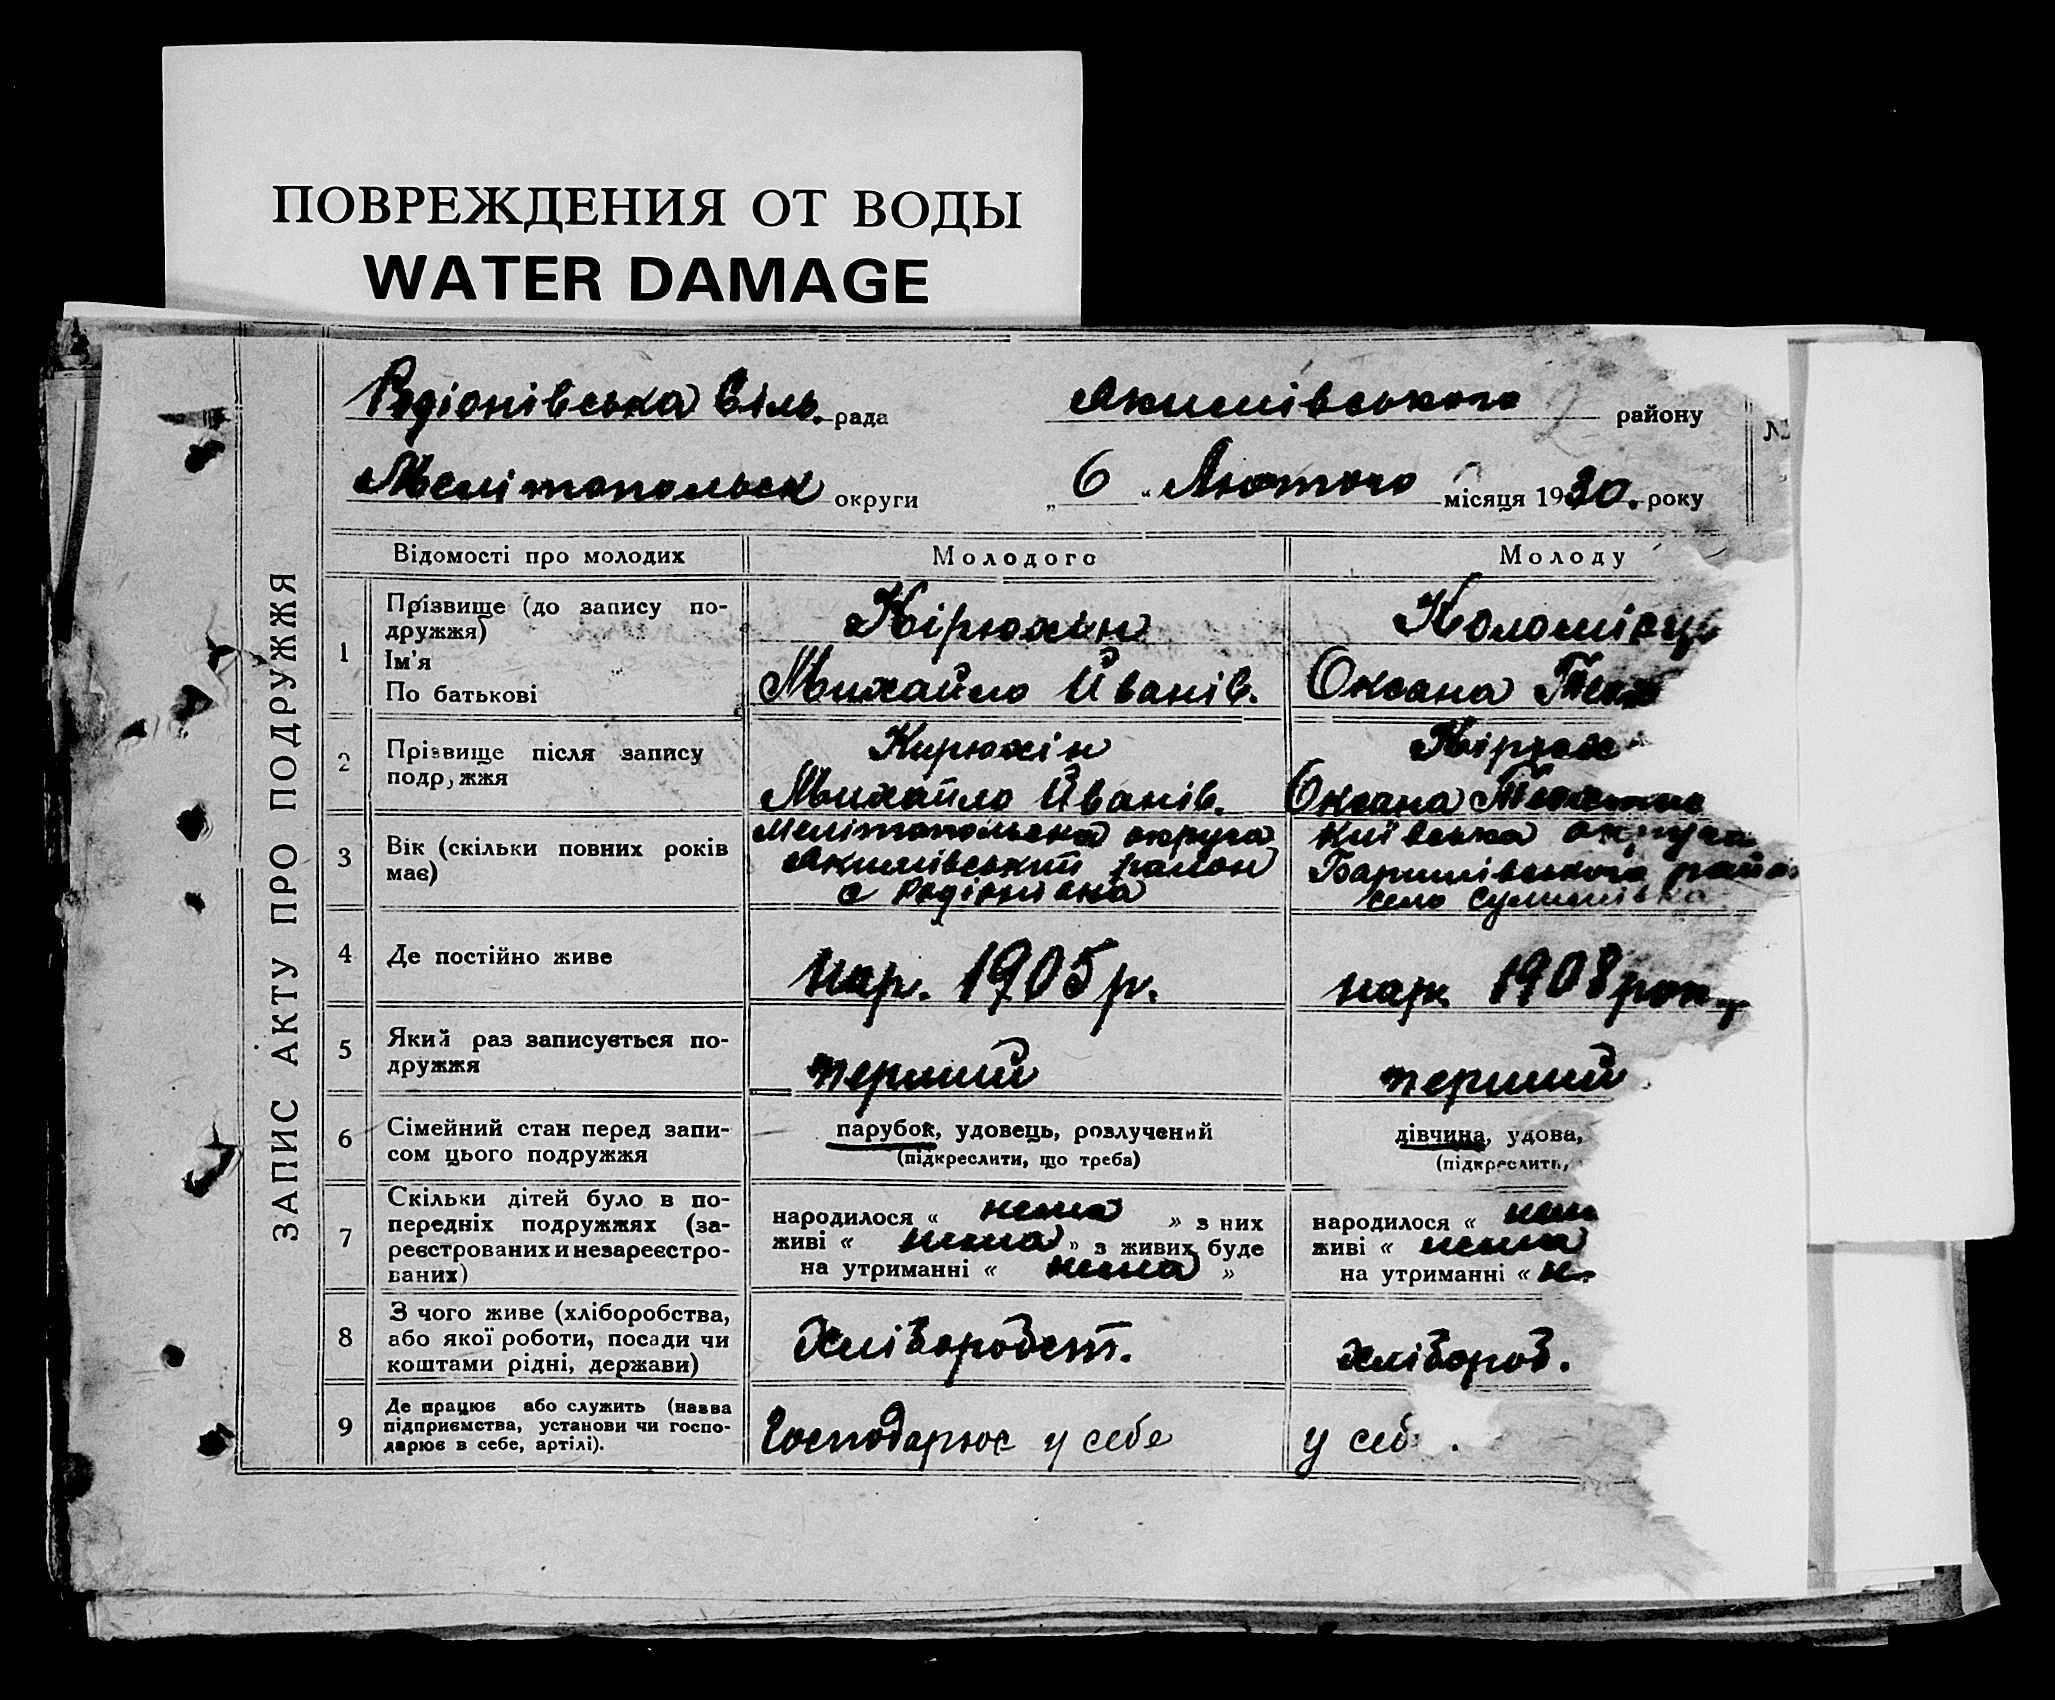 ПОВРЕЖДЕНИЯ ОТ ВОДЫ
WATER DAMAGE
ЗАПИС АКТУ ПРО ПОДРУЖЖЯ
Родіонівська сіль. рада
Якимівського району
№
Мелітопольск округи
„ 6 “ Лютого місяця 1930. року
Відомості про молодих
Молодого
Молоду
1
Прізвище (до запису по-
дружжя)
Ім'я
По батькові
Кірюхін
Михайло Йванів.
Коломієць
Оксана
2
Прізвище після запису
подружжя
Кирюхін
Михайло Йванів.
Кірюх
Оксана
3
Вік (скільки повних років
має)
Мелітопольска округа
Якимівський район
с Родіонівка
Київська округа
Баришівського район
село Сулимівка
4
Де постійно живе
нар. 1905 р.
нар. 1908 рок
5
Який раз записується по-
дружжя
перший
перший
6
Сімейний стан перед запи-
сом цього подружжя
парубок, удовець, розлучений
(підкреслити, що треба)
дівчина, удова,
(підкреслити,
7
Скільки дітей було в по-
передніх подружжях (за-
реєстрованих и незареєстро-
ваних)
народилося « нема » з них
живі « нема » з живих буде
на утриманні « нема »
народилося « нем
живі « нема
на утриманні « н
8
З чого живе (хліборобства,
або якої роботи, посади чи
коштами рідні, держави)
Хліборобст.
хлібороб.
9
Де працює або служить (назва
підприємства, установи чи госпо-
дарює в себе, артілі).
Господарює у себе
у себ